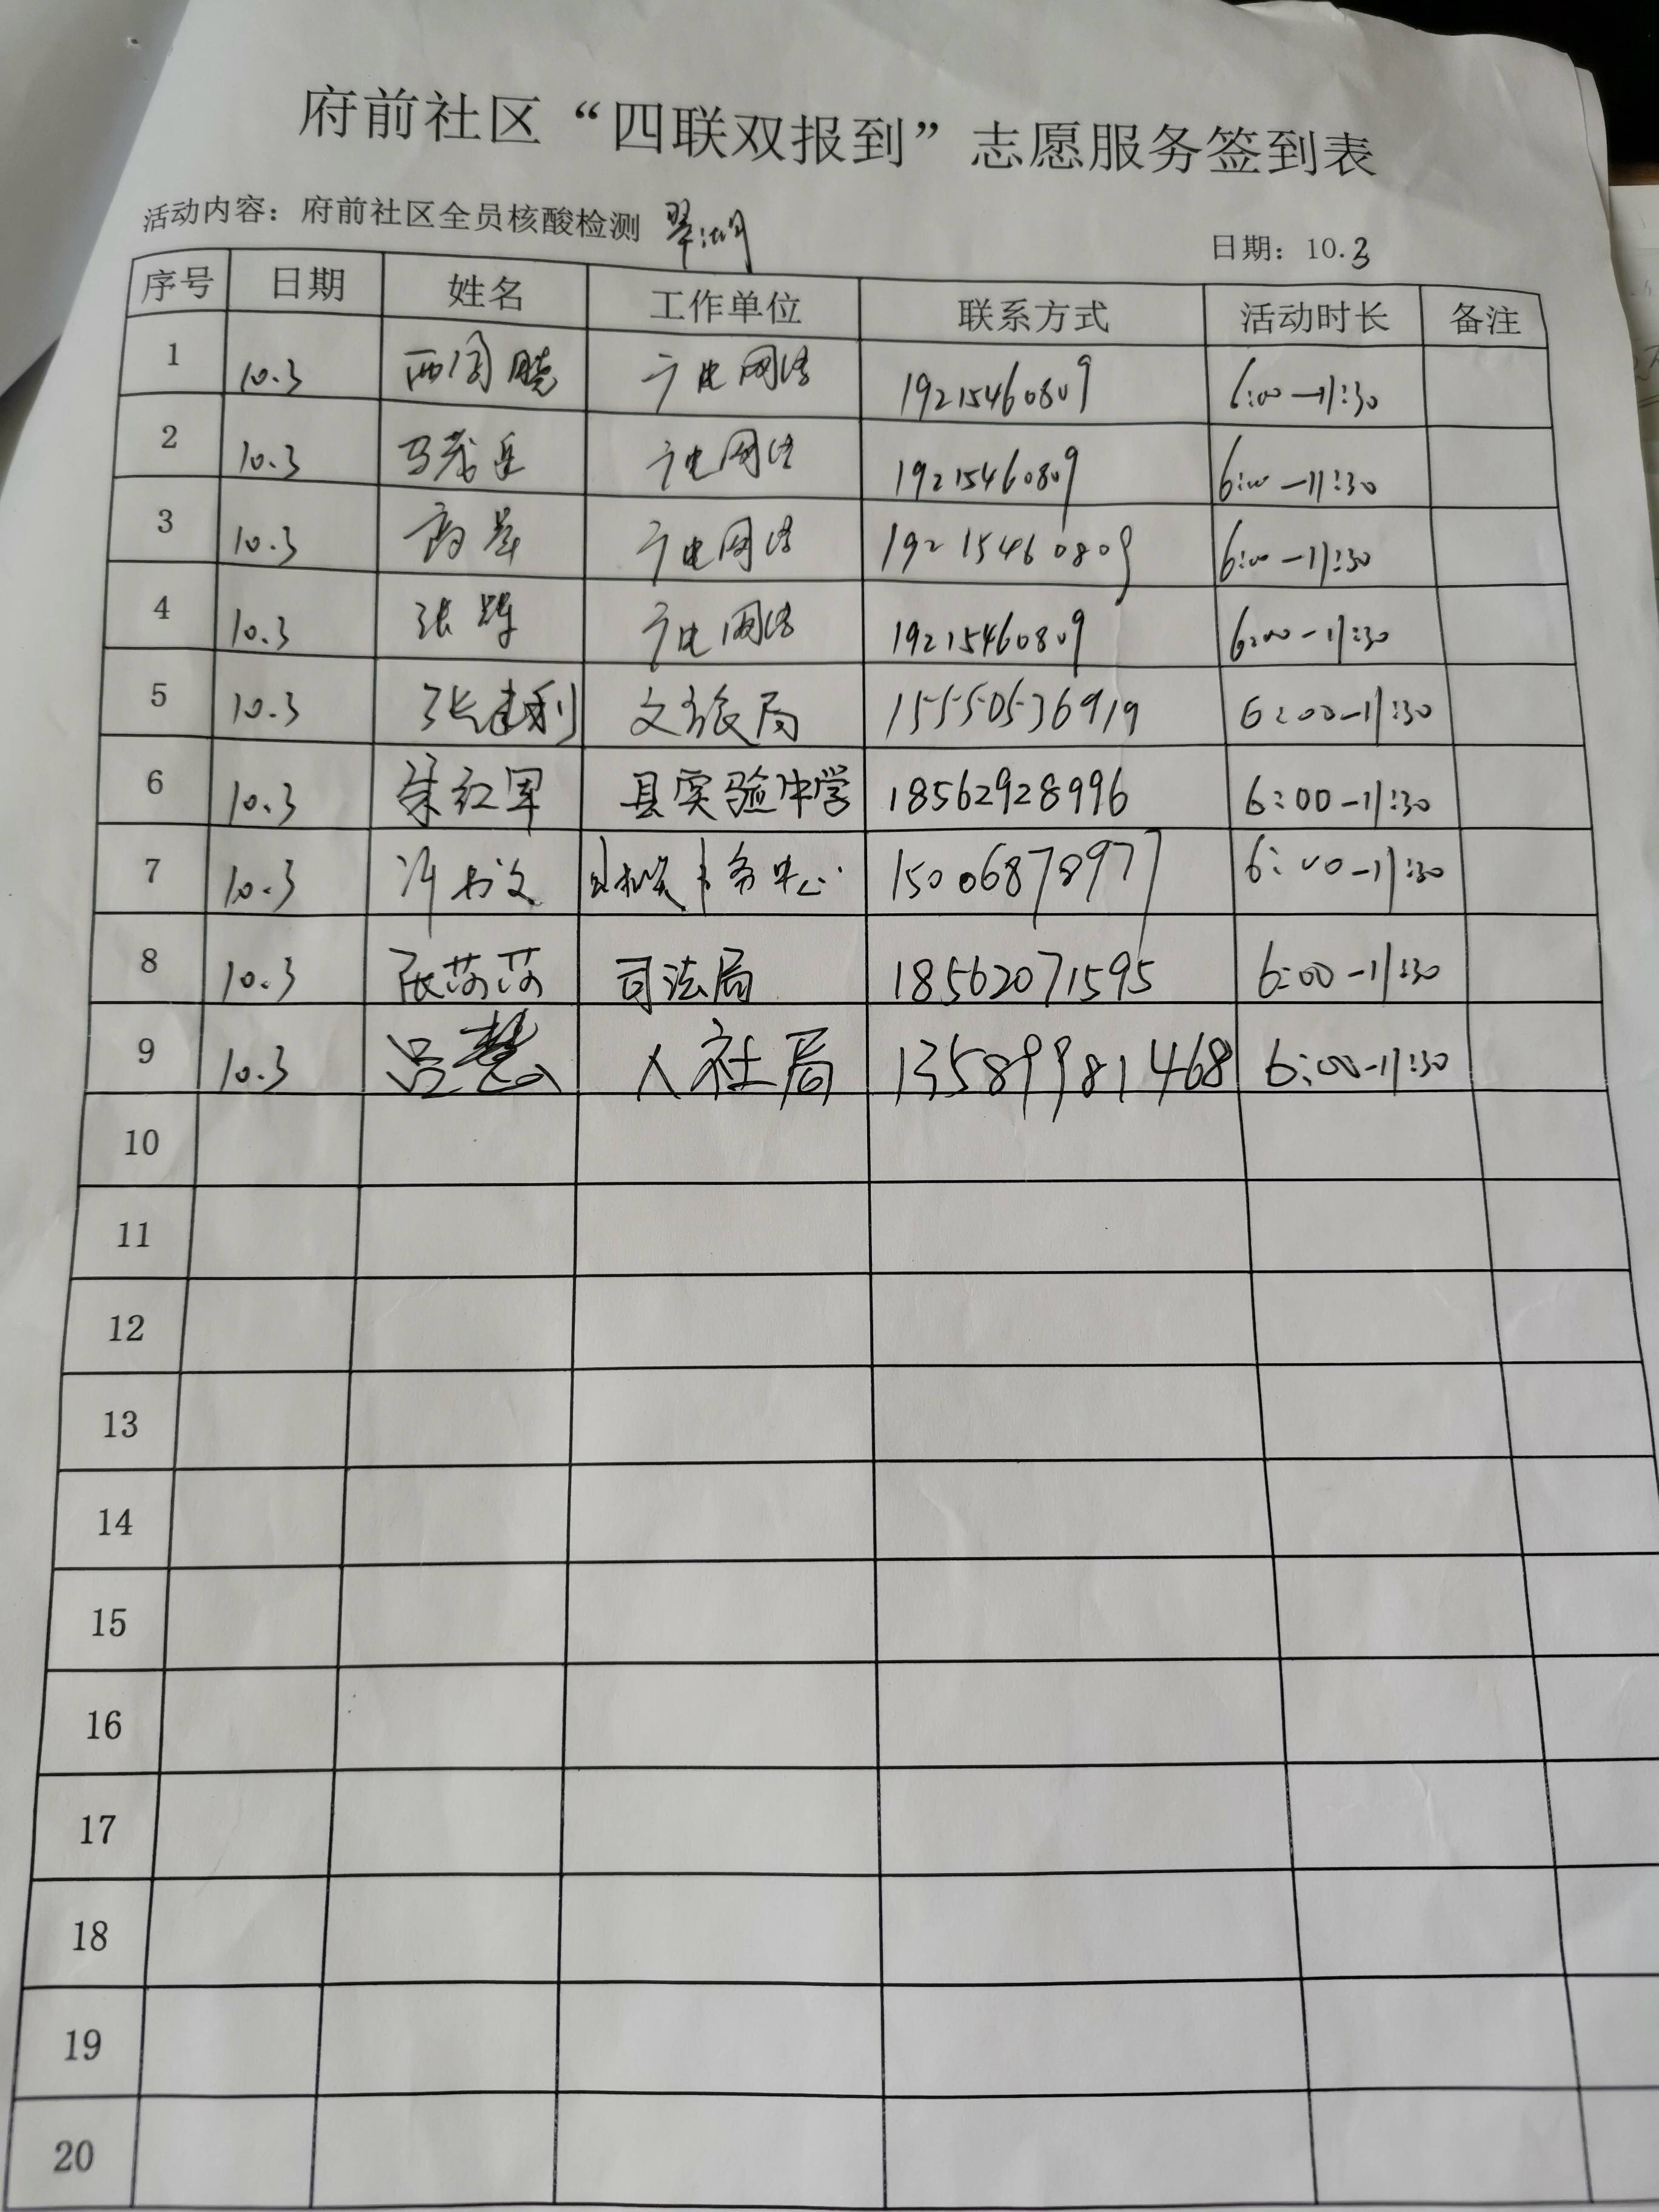 府前社区“四联双报到”志愿服务签到表
活动内容：府前社区全员核酸检测
日期：10.3
序号 日期 姓名 工作单位 联系方式 活动时长 备注
1 10.3 广电网络 19215460809 6:00-11:30
2 10.3 广电网络 19215460809 6:00-11:30
3 10.3 广电网络 19215460809 6:00-11:30
4 10.3 广电网络 19215460809 6:00-11:30
5 10.3 张建利 文旅局 15550536919 6:00-11:30
6 10.3 朱红军 县实验中学 18562928996 6:00-11:30
7 10.3 中心 15006878977 6:00-11:30
8 10.3 张莎莎 司法局 18562071595 6:00-11:30
9 10.3 吕慧 人社局 13589981468 6:00-11:30
10
11
12
13
14
15
16
17
18
19
20